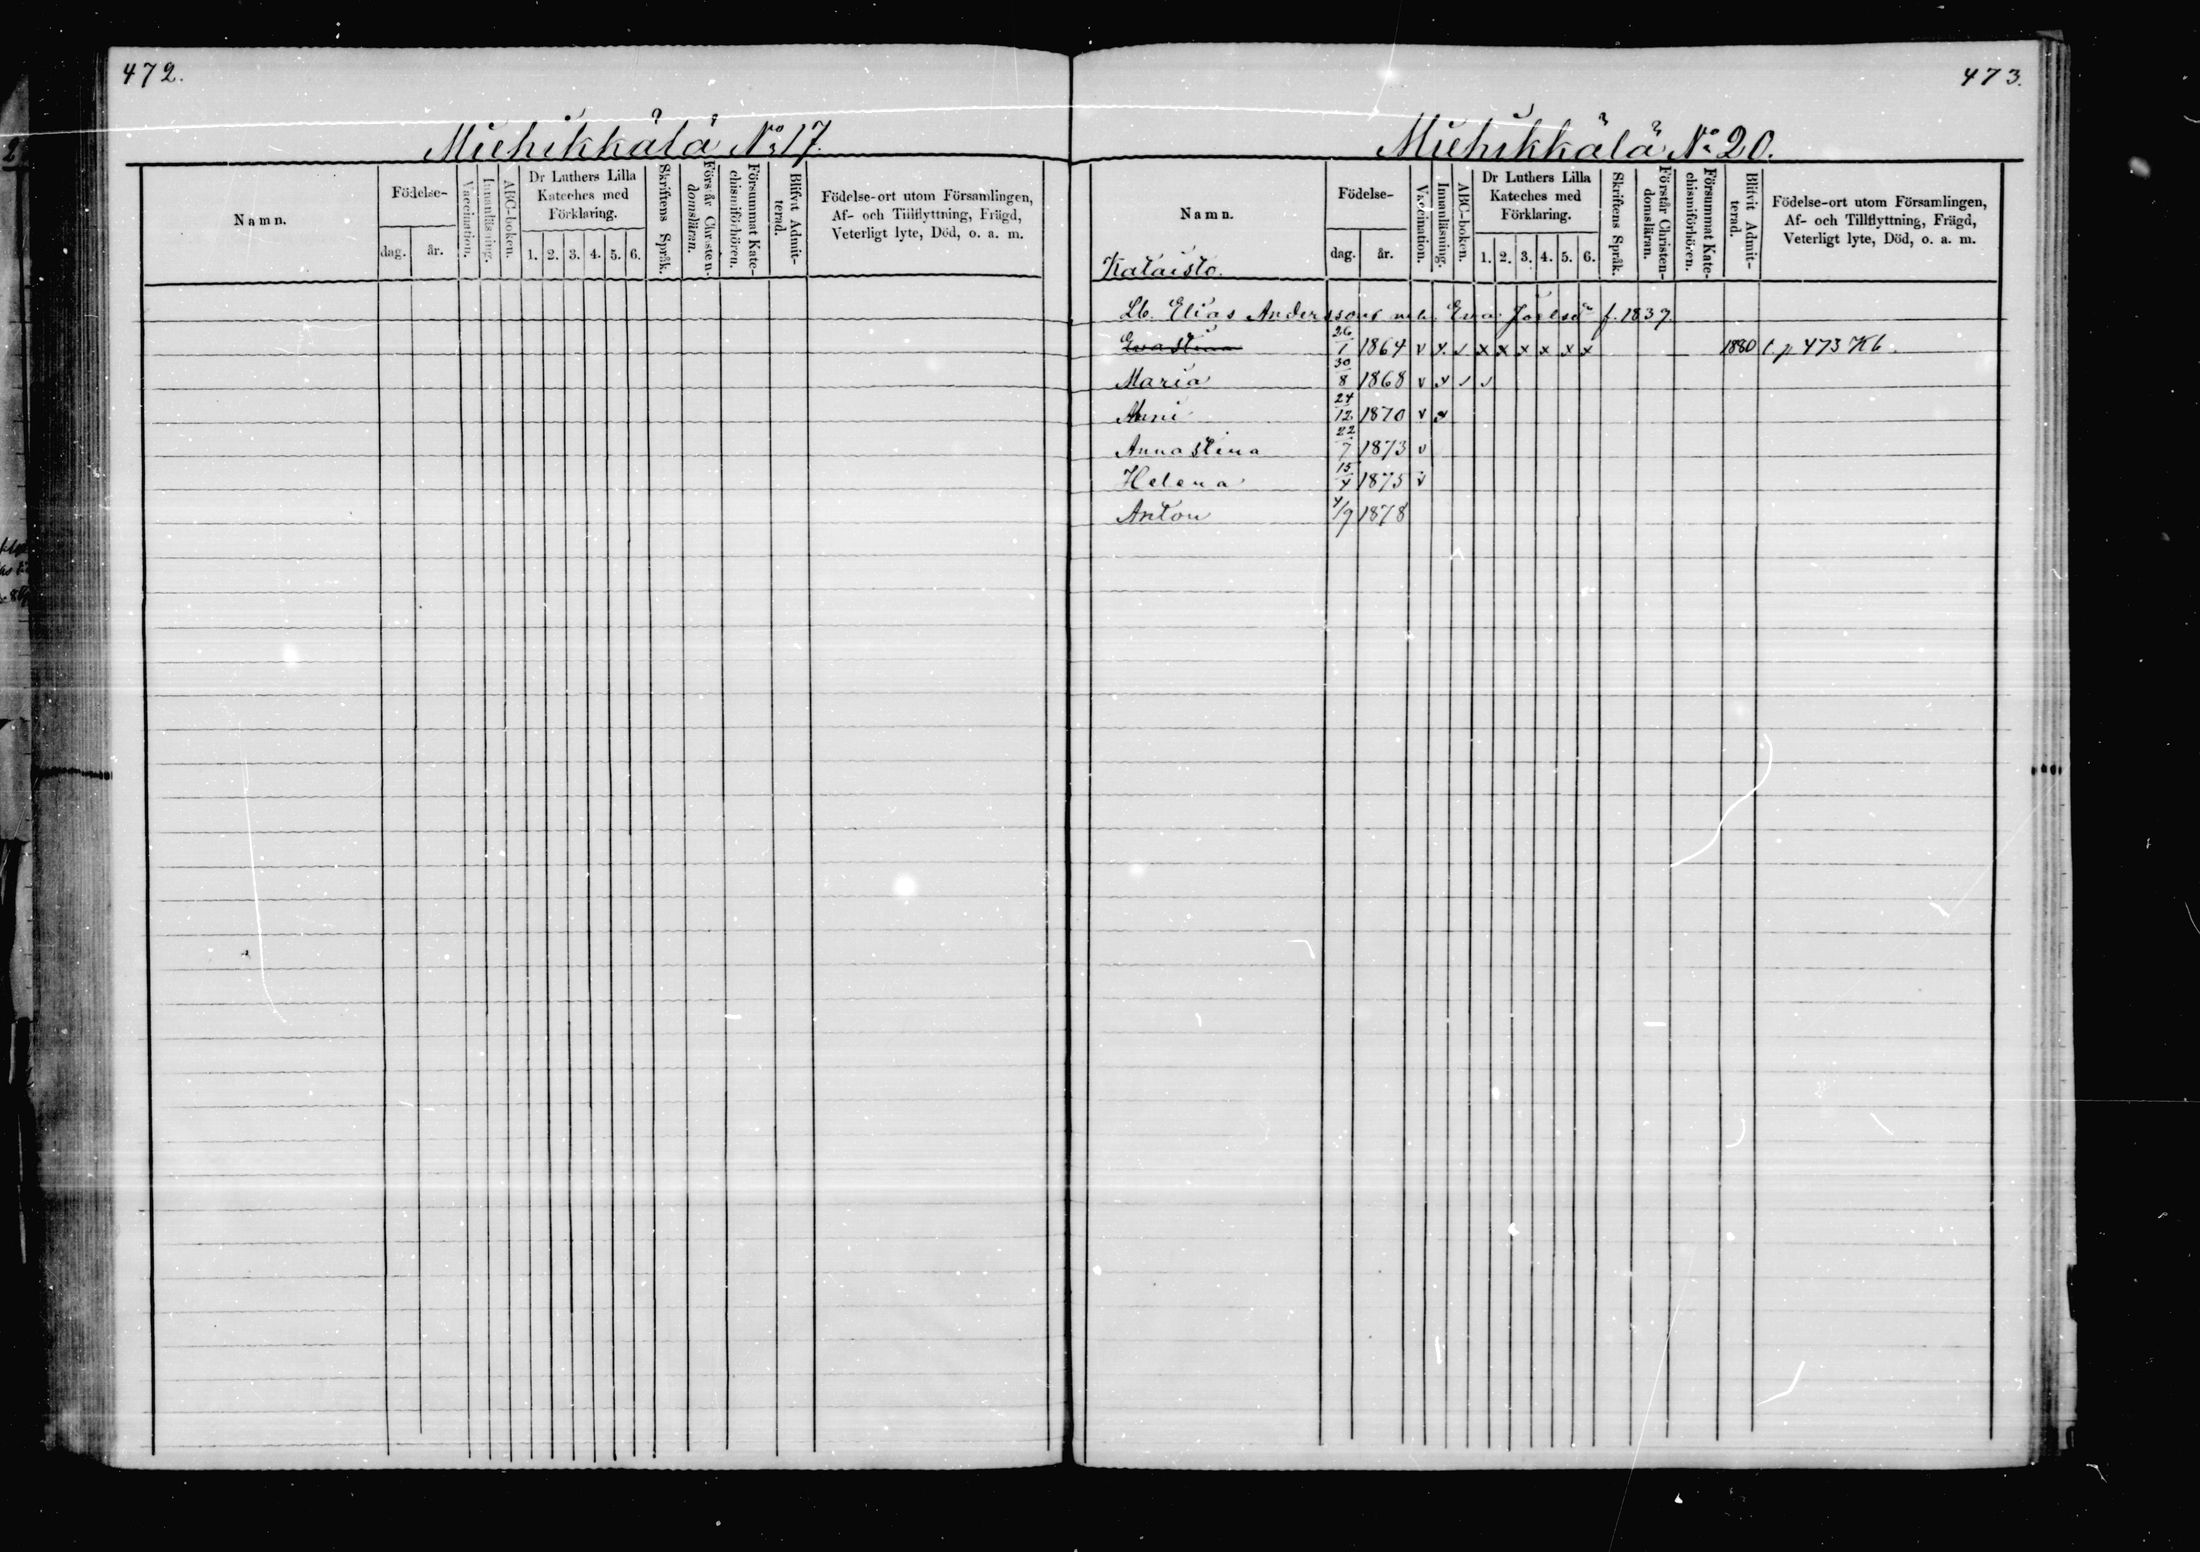 472.
Miehikkälä No 17.
Namn.
Födelse-
dag.
år.
Vaccination.
Innanläsning.
ABC-boken.
Dr Luthers Lilla
Kateches med
Förklaring.
1. 2. 3. 4. 5. 6.
Skriftens Språk.
Förstår Christen-
domsläran.
Försummat Kate-
chismiförhören.
Blifvit Admit-
terad.
Födelse-ort utom Församlingen,
Af- och Tillflyttning, Frägd,
Veterligt lyte, Död, o. a. m.
473.
Miehikkälä No 20.
Namn.
Kataisto.
Födelse-
dag.
år.
Vaccination.
Innanläsning.
ABC-boken.
Dr Luthers Lilla
Kateches med
Förklaring.
1. 2. 3. 4. 5. 6.
Skriftens Språk.
Förstår Christen-
domsläran.
Försummat Kate-
chismiförhören.
Blifvit Admit-
terad.
Födelse-ort utom Församlingen,
Af- och Tillflyttning, Frägd,
Veterligt lyte, Död, o. a. m.
Lb. Elias Anderssons Eva f. 1837
Evastina 26/1 1864 v x. v x x x x x x 1880 l. p 473 Kb.
Maria 30/8 1868 v x v v
Anni 24/12 1870 v x
Annastina 22/7 1873 v
Helena 15/4 1875 v
Anton 4/9 1878